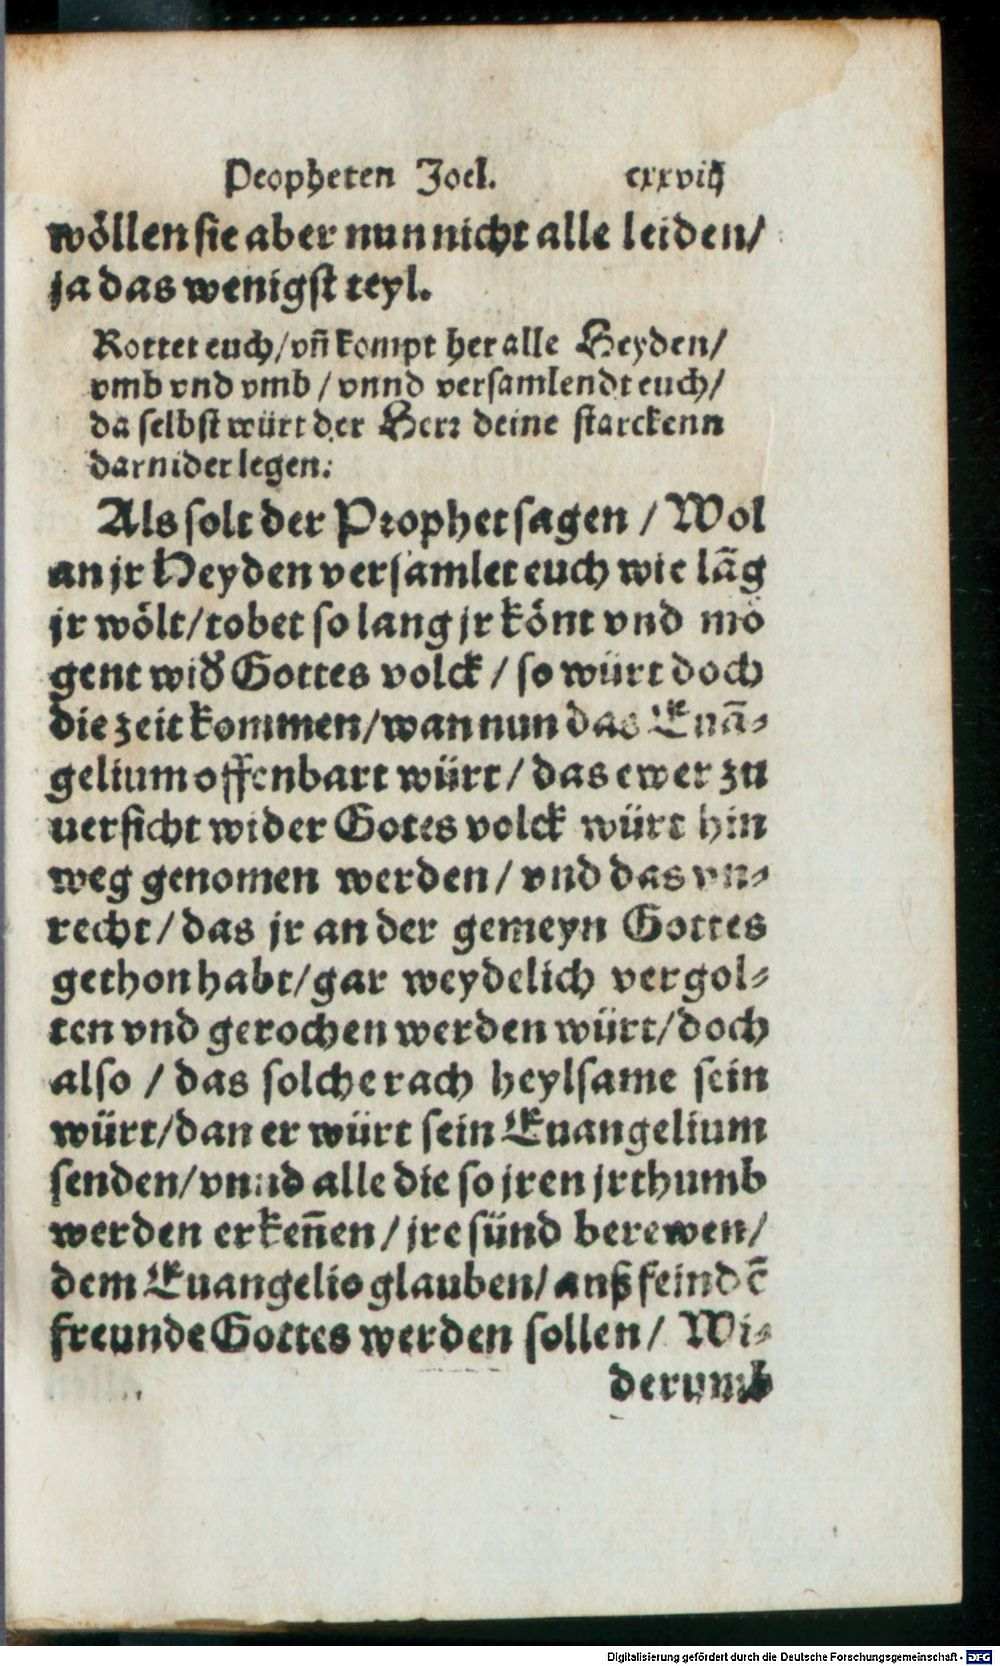 Propheten Joel. cxxviij
wöllen sie aber nun nicht alle leiden/
ja das wenigst teyl.
Rottet euch/vñ kompt her alle Heyden/
vmb vnd vmb/vnnd versamlendt euch/
da selbst würt der Herr deine starckenn
darnider legen.
Als solt der Prophet sagen/Wol
an jr Heyden versamlet euch wie lãg
jr wölt/tobet so lang jr könt vnd mö
gent wid Gottes volck/so würt doch
die zeit kommen/wan nun das Euã⸗
gelium offenbart würt/das ewer zu
uersicht wider Gotes volck würt hin
weg genomen werden/vnd das vn⸗
recht/das jr an der gemeyn Gottes
gethon habt/gar weydelich vergol⸗
ten vnd gerochen werden würt/doch
also/das solche rach heylsame sein
würt/dan er würt sein Euangelium
senden/vnnd alle die so jren jrthumb
werden erkeñen/jre sünd berewen/
dem Euangelio glauben/anß feindẽ
freunde Gottes werden sollen/Wi⸗
derumb
Digitalisierung gefördert durch die Deutsche Forschungsgemeinschaft - DFG